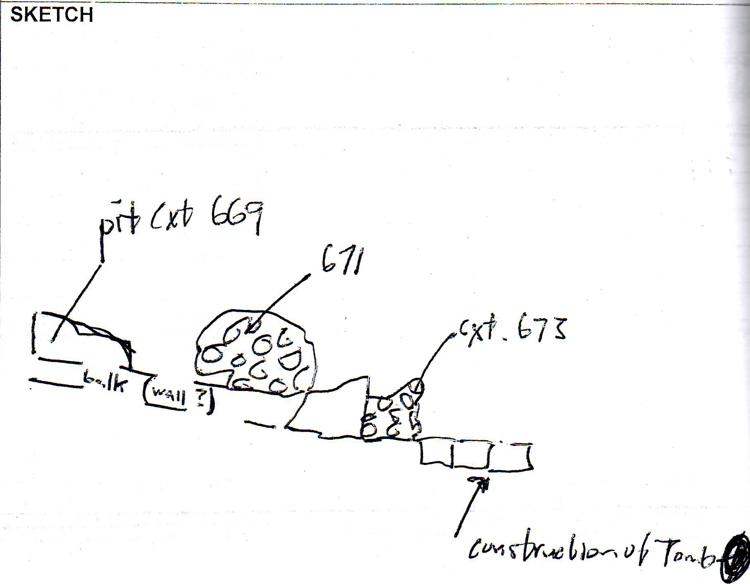 SKETCH
pit cxt 669
671
cxt. 673
balk
(wall ?)
construction of Tomb